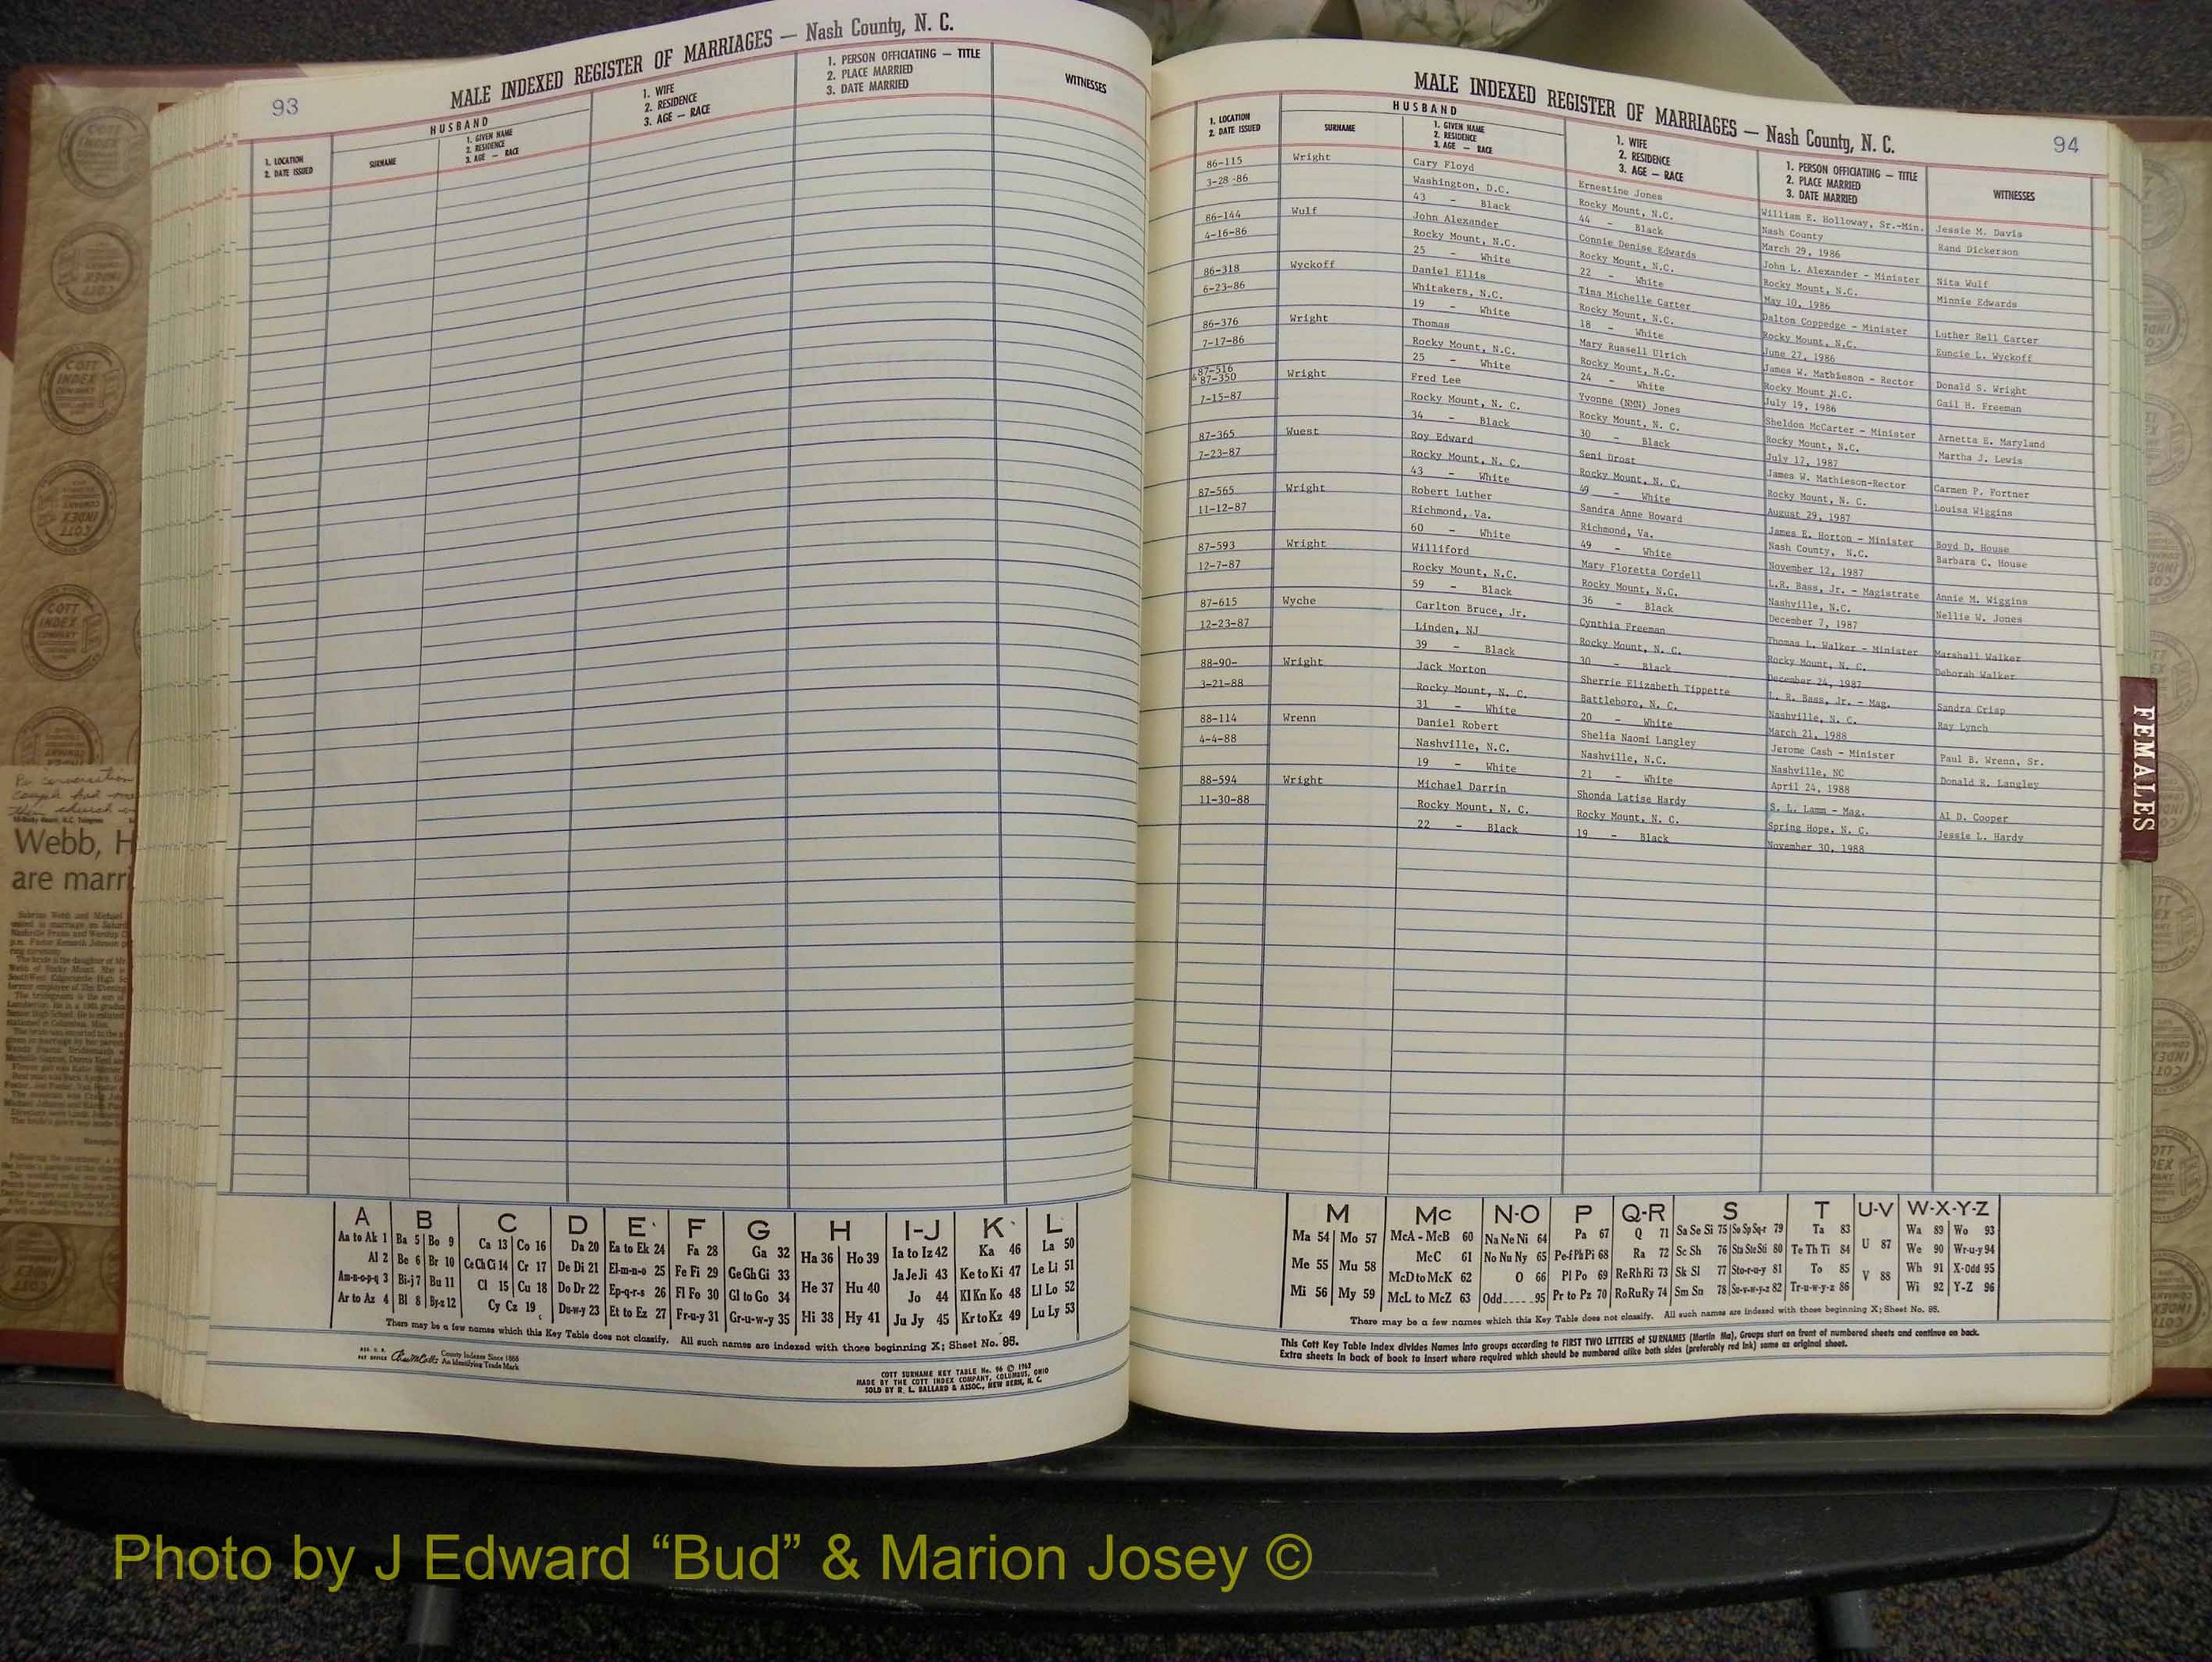 93
MALE INDEXED REGISTER OF MARRIAGES — Nash County, N. C.
1. LOCATION
2. DATE ISSUED
HUSBAND
SURNAME
1. GIVEN NAME
2. RESIDENCE
3. AGE — RACE
1. WIFE
2. RESIDENCE
3. AGE — RACE
1. PERSON OFFICIATING — TITLE
2. PLACE MARRIED
3. DATE MARRIED
WITNESSES
A B C D E F G H I-J K L
Aa to Ak 1 Ba 5 Bo 9 Ca 13 Co 16 Da 20 Ea to Ek 24 Fa 28 Ga 32 Ha 36 Ho 39 Ia to Iz 42 Ka 46 La 50
Al 2 Be 6 Br 10 Ce Ch Ci 14 Cr 17 De Di 21 El-m-n-o 25 Fe Fi 29 Ge Gh Gi 33 He 37 Hu 40 Ja Je Ji 43 Ke to Ki 47 Le Li 51
Am-n-o-p-q 3 Bi-j 7 Bu 11 Cl 15 Cu 18 Do Dr 22 Ep-q-r-s 26 Fl Fo 30 Gl to Go 34 Hi 38 Hy 41 Jo 44 Kl Kn Ko 48 Ll Lo 52
Ar to Az 4 Bl 8 By-z 12 Cy Cz 19 Du-w-y 23 Et to Ez 27 Fr-u-y 31 Gr-u-w-y 35 Ju Jy 45 Kr to Kz 49 Lu Ly 53
There may be a few names which this Key Table does not classify. All such names are indexed with those beginning X; Sheet No. 95.
County Indexes Since 1888
An Identifying Trade Mark
COTT SURNAME KEY TABLE No. 96 © 1962
MADE BY THE COTT INDEX COMPANY, COLUMBUS, OHIO
SOLD BY R. L. BALLARD & ASSOC., NEW BERN, N. C.
MALE INDEXED REGISTER OF MARRIAGES — Nash County, N. C.
94
1. LOCATION
2. DATE ISSUED
HUSBAND
SURNAME
1. GIVEN NAME
2. RESIDENCE
3. AGE — RACE
1. WIFE
2. RESIDENCE
3. AGE — RACE
1. PERSON OFFICIATING — TITLE
2. PLACE MARRIED
3. DATE MARRIED
WITNESSES
86-115 Wright Cary Floyd Ernestine Jones William E. Holloway, Sr.-Min. Jessie M. Davis
3-28-86 Washington, D.C. Rocky Mount, N.C. Nash County Rand Dickerson
43 - Black 44 - Black March 29, 1986
86-144 Wulf John Alexander Connie Denise Edwards John L. Alexander - Minister Nita Wulf
4-16-86 Rocky Mount, N.C. Rocky Mount, N.C. Rocky Mount, N.C. Minnie Edwards
25 - White 22 - White May 10, 1986
86-318 Wyckoff Daniel Ellis Tina Michelle Carter Dalton Coppedge - Minister Luther Rell Carter
6-23-86 Whitakers, N.C. Rocky Mount, N.C. Rocky Mount, N.C. Euncie L. Wyckoff
19 - White 18 - White June 27, 1986
86-376 Wright Thomas Mary Russell Ulrich James W. Mathieson - Rector Donald S. Wright
7-17-86 Rocky Mount, N.C. Rocky Mount, N.C. Rocky Mount N.C. Gail H. Freeman
25 - White 24 - White July 19, 1986
87-516
& 87-350 Wright Fred Lee Yvonne (NMN) Jones Sheldon McCarter - Minister Arnetta E. Maryland
7-15-87 Rocky Mount, N. C. Rocky Mount, N. C. Rocky Mount, N.C. Martha J. Lewis
34 - Black 30 - Black July 17, 1987
87-365 Wuest Roy Edward Seni Drost James W. Mathieson-Rector Carmen P. Fortner
7-23-87 Rocky Mount, N. C. Rocky Mount, N. C. Rocky Mount, N. C. Louisa Wiggins
43 - White 49 - White August 29, 1987
87-565 Wright Robert Luther Sandra Anne Howard James E. Horton - Minister Boyd D. House
11-12-87 Richmond, Va. Richmond, Va. Nash County, N.C. Barbara C. House
60 - White 49 - White November 12, 1987
87-593 Wright Williford Mary Floretta Cordell L.R. Bass, Jr. - Magistrate Annie M. Wiggins
12-7-87 Rocky Mount, N.C. Rocky Mount, N.C. Nashville, N.C. Nellie W. Jones
59 - Black 36 - Black December 7, 1987
87-615 Wyche Carlton Bruce, Jr. Cynthia Freeman Thomas L. Walker - Minister Marshall Walker
12-23-87 Linden, NJ Rocky Mount, N. C. Rocky Mount, N. C. Deborah Walker
39 - Black 30 - Black December 24, 1987
88-90- Wright Jack Morton Sherrie Elizabeth Tippette L. R. Bass, Jr. - Mag. Sandra Crisp
3-21-88 Rocky Mount, N. C. Battleboro, N. C. Nashville, N. C. Ray Lynch
31 - White 20 - White March 21, 1988
88-114 Wrenn Daniel Robert Shelia Naomi Langley Jerome Cash - Minister Paul B. Wrenn, Sr.
4-4-88 Nashville, N.C. Nashville, N.C. Nashville, NC Donald R. Langley
19 - White 21 - White April 24, 1988
88-594 Wright Michael Darrin Shonda Latise Hardy S. L. Lamm - Mag. Al D. Cooper
11-30-88 Rocky Mount, N. C. Rocky Mount, N. C. Spring Hope, N. C. Jessie L. Hardy
22 - Black 19 - Black November 30, 1988
FEMALES
M Mc N-O P Q-R S T U-V W-X-Y-Z
Ma 54 Mo 57 McA - McB 60 Na Ne Ni 64 Pa 67 Q 71 Sa Se Si 75 So Sp Sq-r 79 Ta 83 U 87 Wa 89 Wo 93
Me 55 Mu 58 McC 61 No Nu Ny 65 Pe-f Ph Pi 68 Ra 72 Sc Sh 76 Sta Ste Sti 80 Te Th Ti 84 V 88 We 90 Wr-u-y 94
Mi 56 My 59 McD to McK 62 O 66 Pl Po 69 Re Rh Ri 73 Sk Sl 77 Sto-r-u-y 81 To 85 Wh 91 X-Odd 95
McL to McZ 63 Odd 95 Pr to Pz 70 Ro Ru Ry 74 Sm Sn 78 Su-v-w-y-z 82 Tr-u-w-y-z 86 Wi 92 Y-Z 96
There may be a few names which this Key Table does not classify. All such names are indexed with those beginning X; Sheet No. 95.
This Cott Key Table Index divides Names into groups according to FIRST TWO LETTERS of SURNAMES (Martin Ma), Groups start on front of numbered sheets and continue on back.
Extra sheets in back of book to insert where required which should be numbered alike both sides (preferably red ink) same as original sheet.
Webb, H
are marri
Photo by J Edward “Bud” & Marion Josey ©